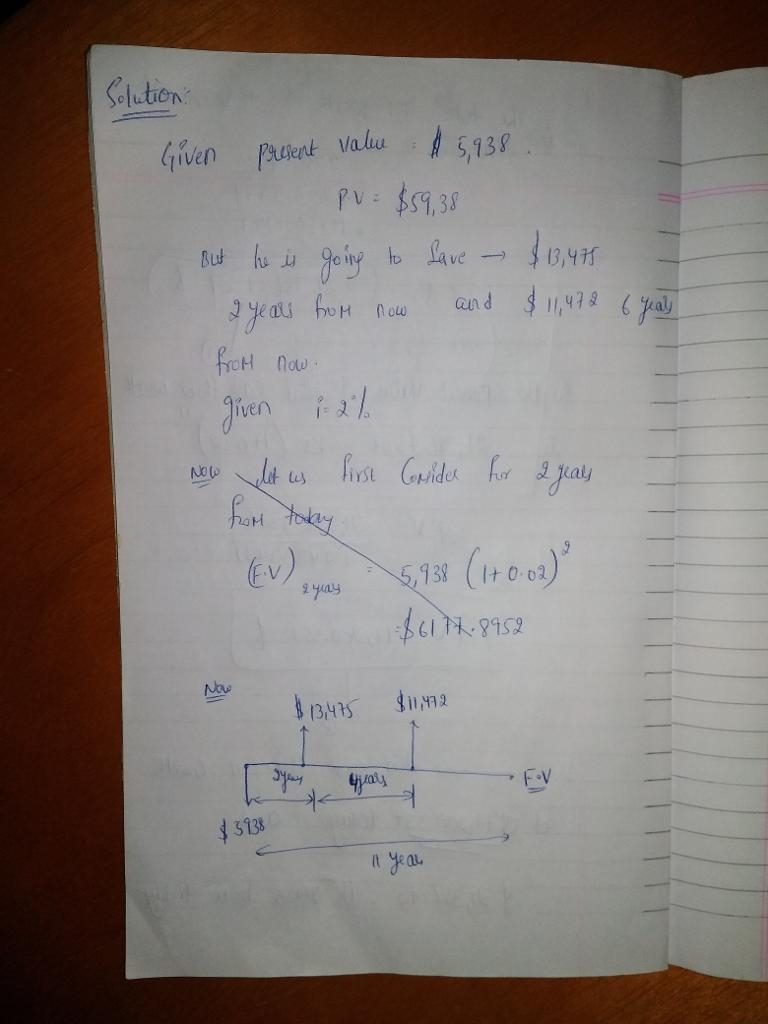 Solution:
Given present value = $ 5,938.
PV = $59,38
But he is going to save → $13,475
2 years from now and $11,472 6 years
from now.
given i = 2%
Now let us first Consider for 2 years
from today
(F.V) 2 years = 5,938 (1+0.02)^2
= $6177.8952
Now
$13,475 $11,472
2years 4years F.V
$5938
11 years